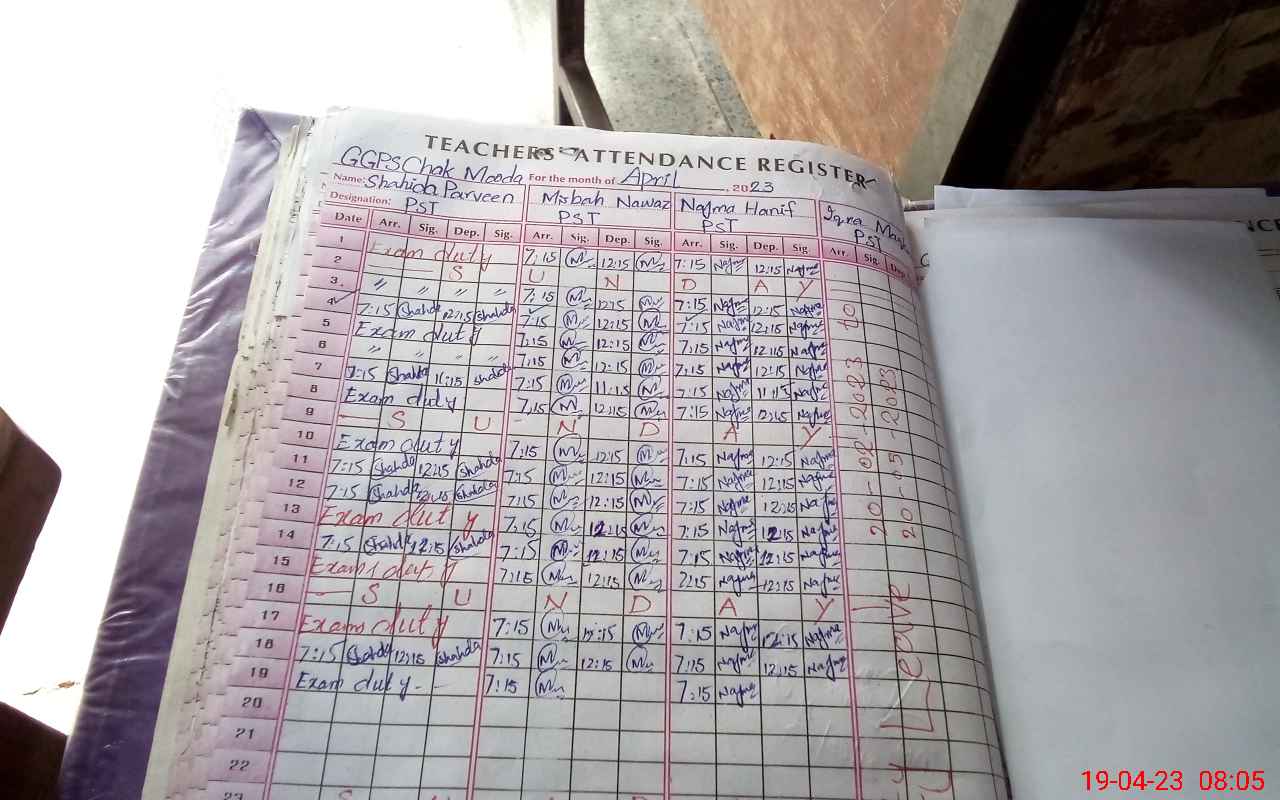 TEACHERS ATTENDANCE REGISTER
GGPS Chak Mooda For the month of April, 2023
Name: Shahida Parveen Misbah Nawaz Najma Hanif Iqra
Designation: PST PST PST PST
Date Arr. Sig. Dep. Sig. Arr. Sig. Dep. Sig. Arr. Sig. Dep. Sig. Arr. Sig. Dep.
1 Exam duty 7:15 12:15 7:15 Najma 12:15 Najma
2 S U N D A Y
3 " " " " 7:15 12:15 7:15 Najma 12:15 Najma
4 7:15 Shahida 12:15 Shahida 7:15 12:15 7:15 Najma 12:15 Najma
5 Exam duty 7:15 12:15 7:15 Najma 12:15 Najma
6 " " " " 7:15 12:15 7:15 Najma 12:15 Najma
7 7:15 Shahida 11:15 Shahida 7:15 11:15 7:15 Najma 11:15 Najma
8 Exam duty 7:15 12:15 7:15 Najma 12:15 Najma
9 S U N D A Y
10 Exam duty 7:15 12:15 7:15 Najma 12:15 Najma
11 7:15 Shahida 12:15 Shahida 7:15 12:15 7:15 Najma 12:15 Najma
12 7:15 Shahida 12:15 Shahida 7:15 12:15 7:15 Najma 12:15 Najma
13 Exam duty 7:15 12:15 7:15 Najma 12:15 Najma
14 7:15 Shahida 12:15 Shahida 7:15 12:15 7:15 Najma 12:15 Najma
15 Exam duty 7:15 12:15 7:15 Najma 12:15 Najma
16 S U N D A Y
17 Exam duty 7:15 12:15 7:15 Najma 12:15 Najma
18 7:15 Shahida 12:15 Shahida 7:15 12:15 7:15 Najma 12:15 Najma
19 Exam duty 7:15 7:15 Najma
20
21
22
23
Leave 20-02-2023 to
20-05-2023
19-04-23 08:05